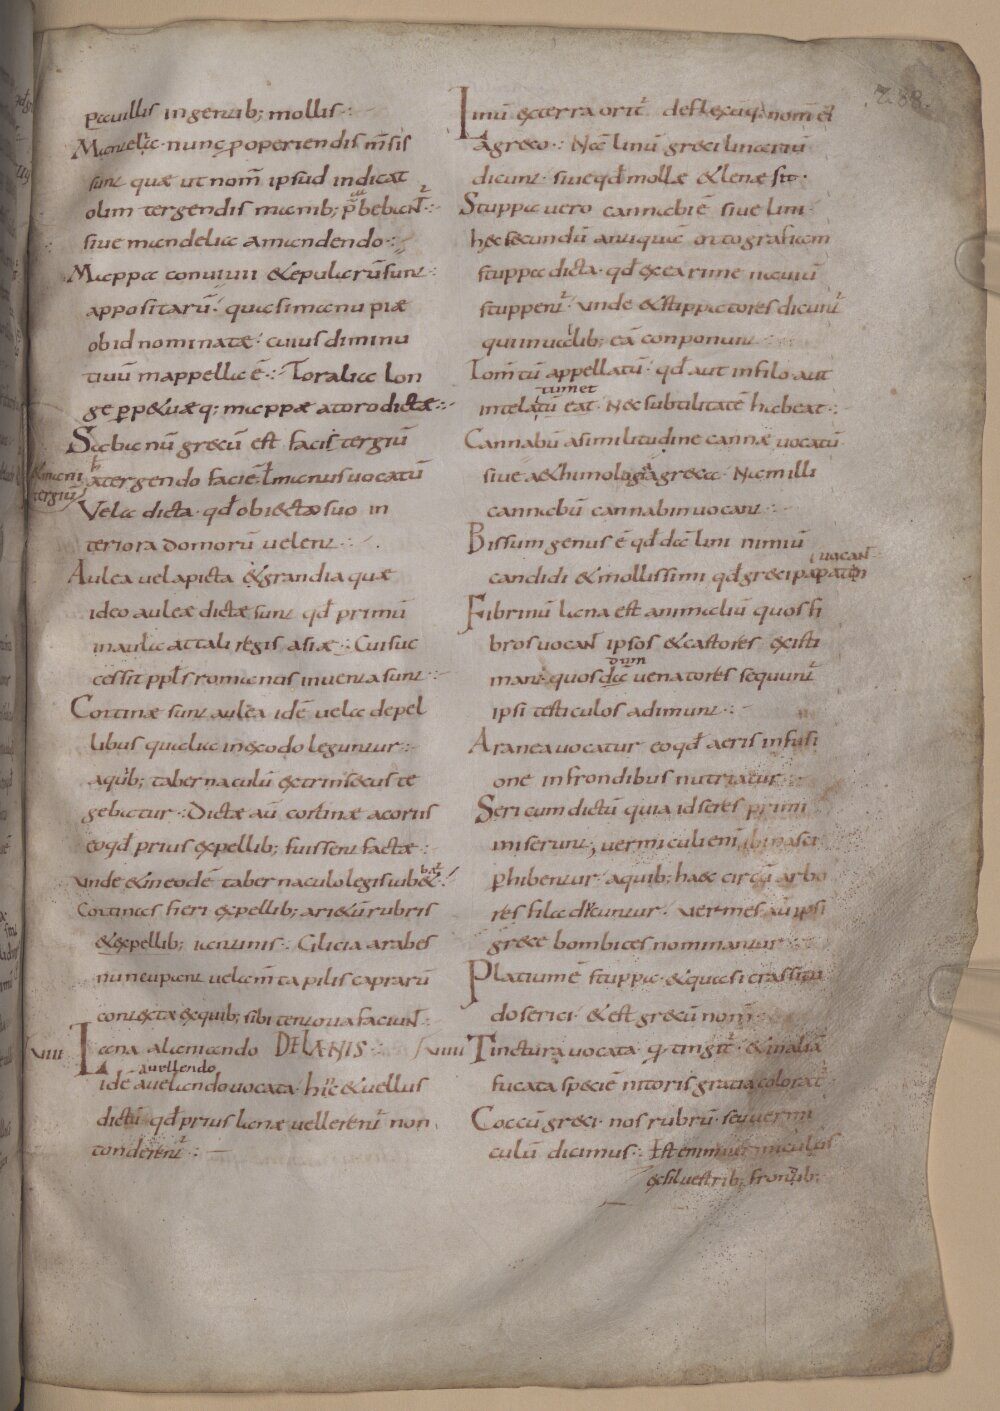 288.
p&a villis ingentib; mollis
Mantelia nunc p operiendis m̄sis
sunt quæ ut nom̄ ipsud indicat
olim tergendis manib; p̄bebant̄
siue mandelia a mandendo
Mappa conuiuii & epularū sunt
appositarū quasi manu piæ
ob id nominatæ cuius diminu
tiuū mappella ē Toralia lon
ge pp&uæq; mappæ a toro dictæ
Sabanū grecū est facis tergiū
a tergendo faciē ł manus uocatū
Vela dicta qđ obiectæ suo in
teriora domorū velent
Aulea vela picta & grandia quæ
ideo auleæ dictæ sunt qđ primū
in aula attali regis asiæ Cui suc
cessit ppłs romanus inuenta sunt
Cortinæ sunt aulea idē vela de pel
libus qualia in exodo leguntur
a quib; tabernaculū extrinsecus te
gebatur Dictæ aū cortinæ a coriis
eo qđ prius ex pellib; fuissent factæ
unde & in eodē tabernaculo legis iub&
Cortinas fieri ex pellib; ari&ū rubris
& ex pellib; iacintinis Cilicia arabes
nuncupant velam̄ta pilis caprarū
contexta ex quib; sibi tentoria faciunt̄
xviii Lana a laniando DE LANIS
avellendo
idē a ueliando vocata hinc & vellus
dictū qđ prius lanæ vellerent̄ non
tonderent̄
Linū ex terra orit̄ deflexūq; nom̄ ei
a greco Nā linū greci linariū
dicunt siue qđ molle & lene sit
Stuppa vero cannabi ē siue lini
hec secundū antiquā ortografiam
stuppa dicta qđ ex ea rime nauiū
stuppent̄ unde & stippatores dicunt̄
qui in uallib; eā conponunt
Tom̄tū appellatū qđ aut in filo aut
tumet
in tela tū eat nec subtilitatē habeat
Cannabū a similitudine cannæ uocatū
siue a ethimologia greca Nam illi
cannabū cannabin uocant
Bissum genus ē qđ dā lini nimiū
candidi & mollissimi qđ greci papaten
uocan̄
Fibrinū lana est animaliū quos fi
bros uocan̄ ipsos & castores existi
mant quos dā venatores sequunt̄
dum
ipsi testiculos adimunt
Aranea vocatur eo qđ aeris infusi
one in frondibus nutriatur
Sericum dictū quia id seres primi
miserunt, vermiculi enī ibi nasci
phibentur a quib; hæc circū arbo
res fila dicuntur Vermes aū ipsi
grece bombices nominantur
Platium ē stuppa & quasi crassitu
do serici & est grecū nom̄
xviiii Tinctura vocata q tingit̄ & in aliā
fucata speciē nitoris gratia colorat̄
Coccū greci nos rubrū seu vermi
culū dicimus Est enim vermiculus
ex siluestrib; frondib;